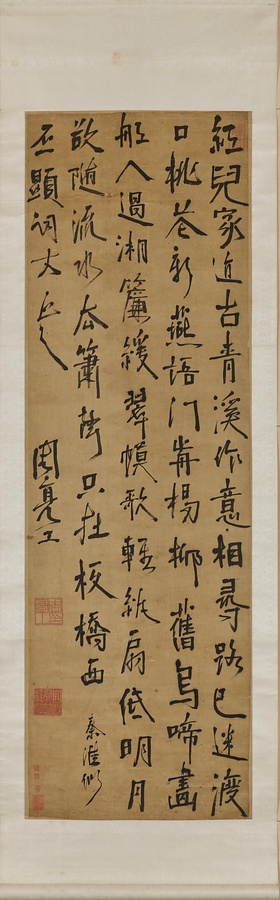 紅兒家近古青溪作意相尋路已迷渡
口桃花新燕語門前楊柳舊烏啼畫
船人過湘簾緩翠幙歌輕紈扇低明月
欲隨流水去簫聲只在板橋西
秦淮
丕顯詞丈正之
周亮工